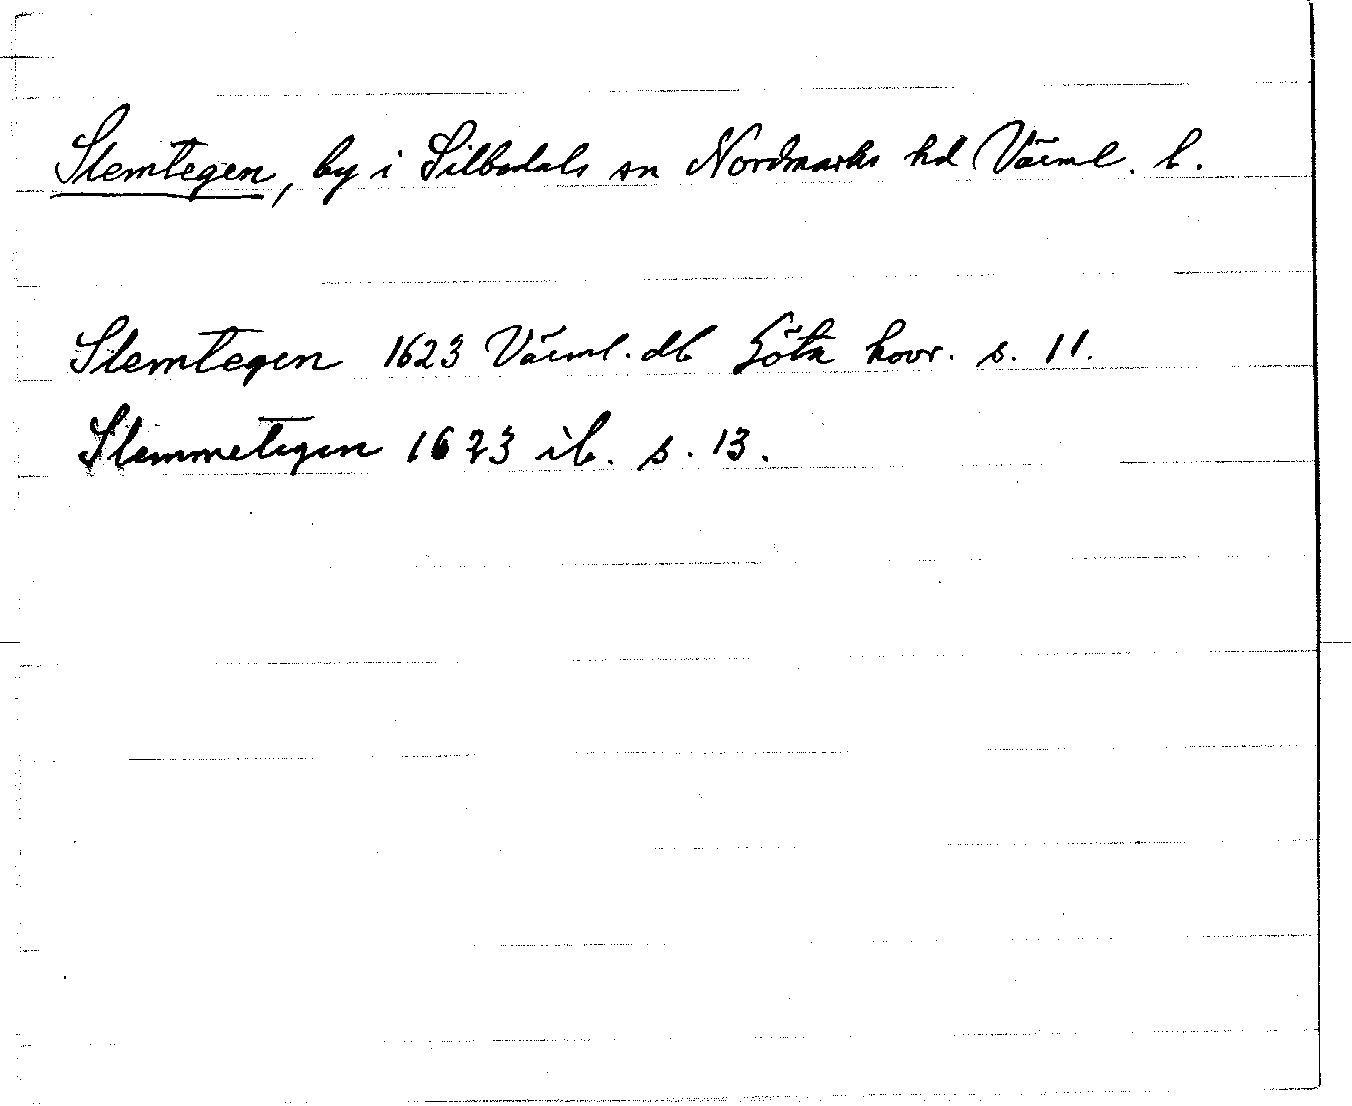 Slemtegen, by i Silbodals sn Nordmarks hd Värml. l.
Slemtegen 1623 Värml. db Göta hovr. s. 11.
Slemmetegen 1623 ib. s. 13.